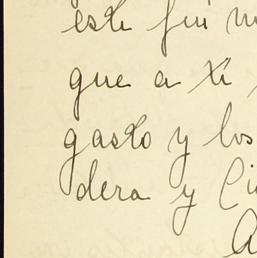 este fin
que a ti
gasto y los
dera y